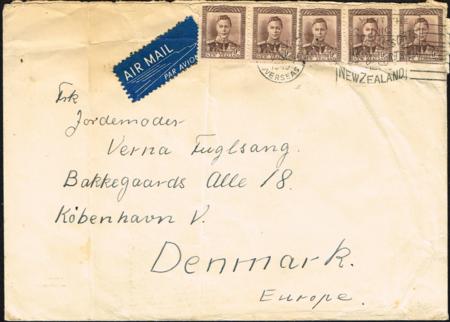 AIR MAIL
PAR AVION
OVERSEAS
NEW ZEALAND
Frk
Jordemoder
Verna Fuglsang.
Bakkegaards Alle 18.
Köbenhavn V.
Denmark.
Europe.